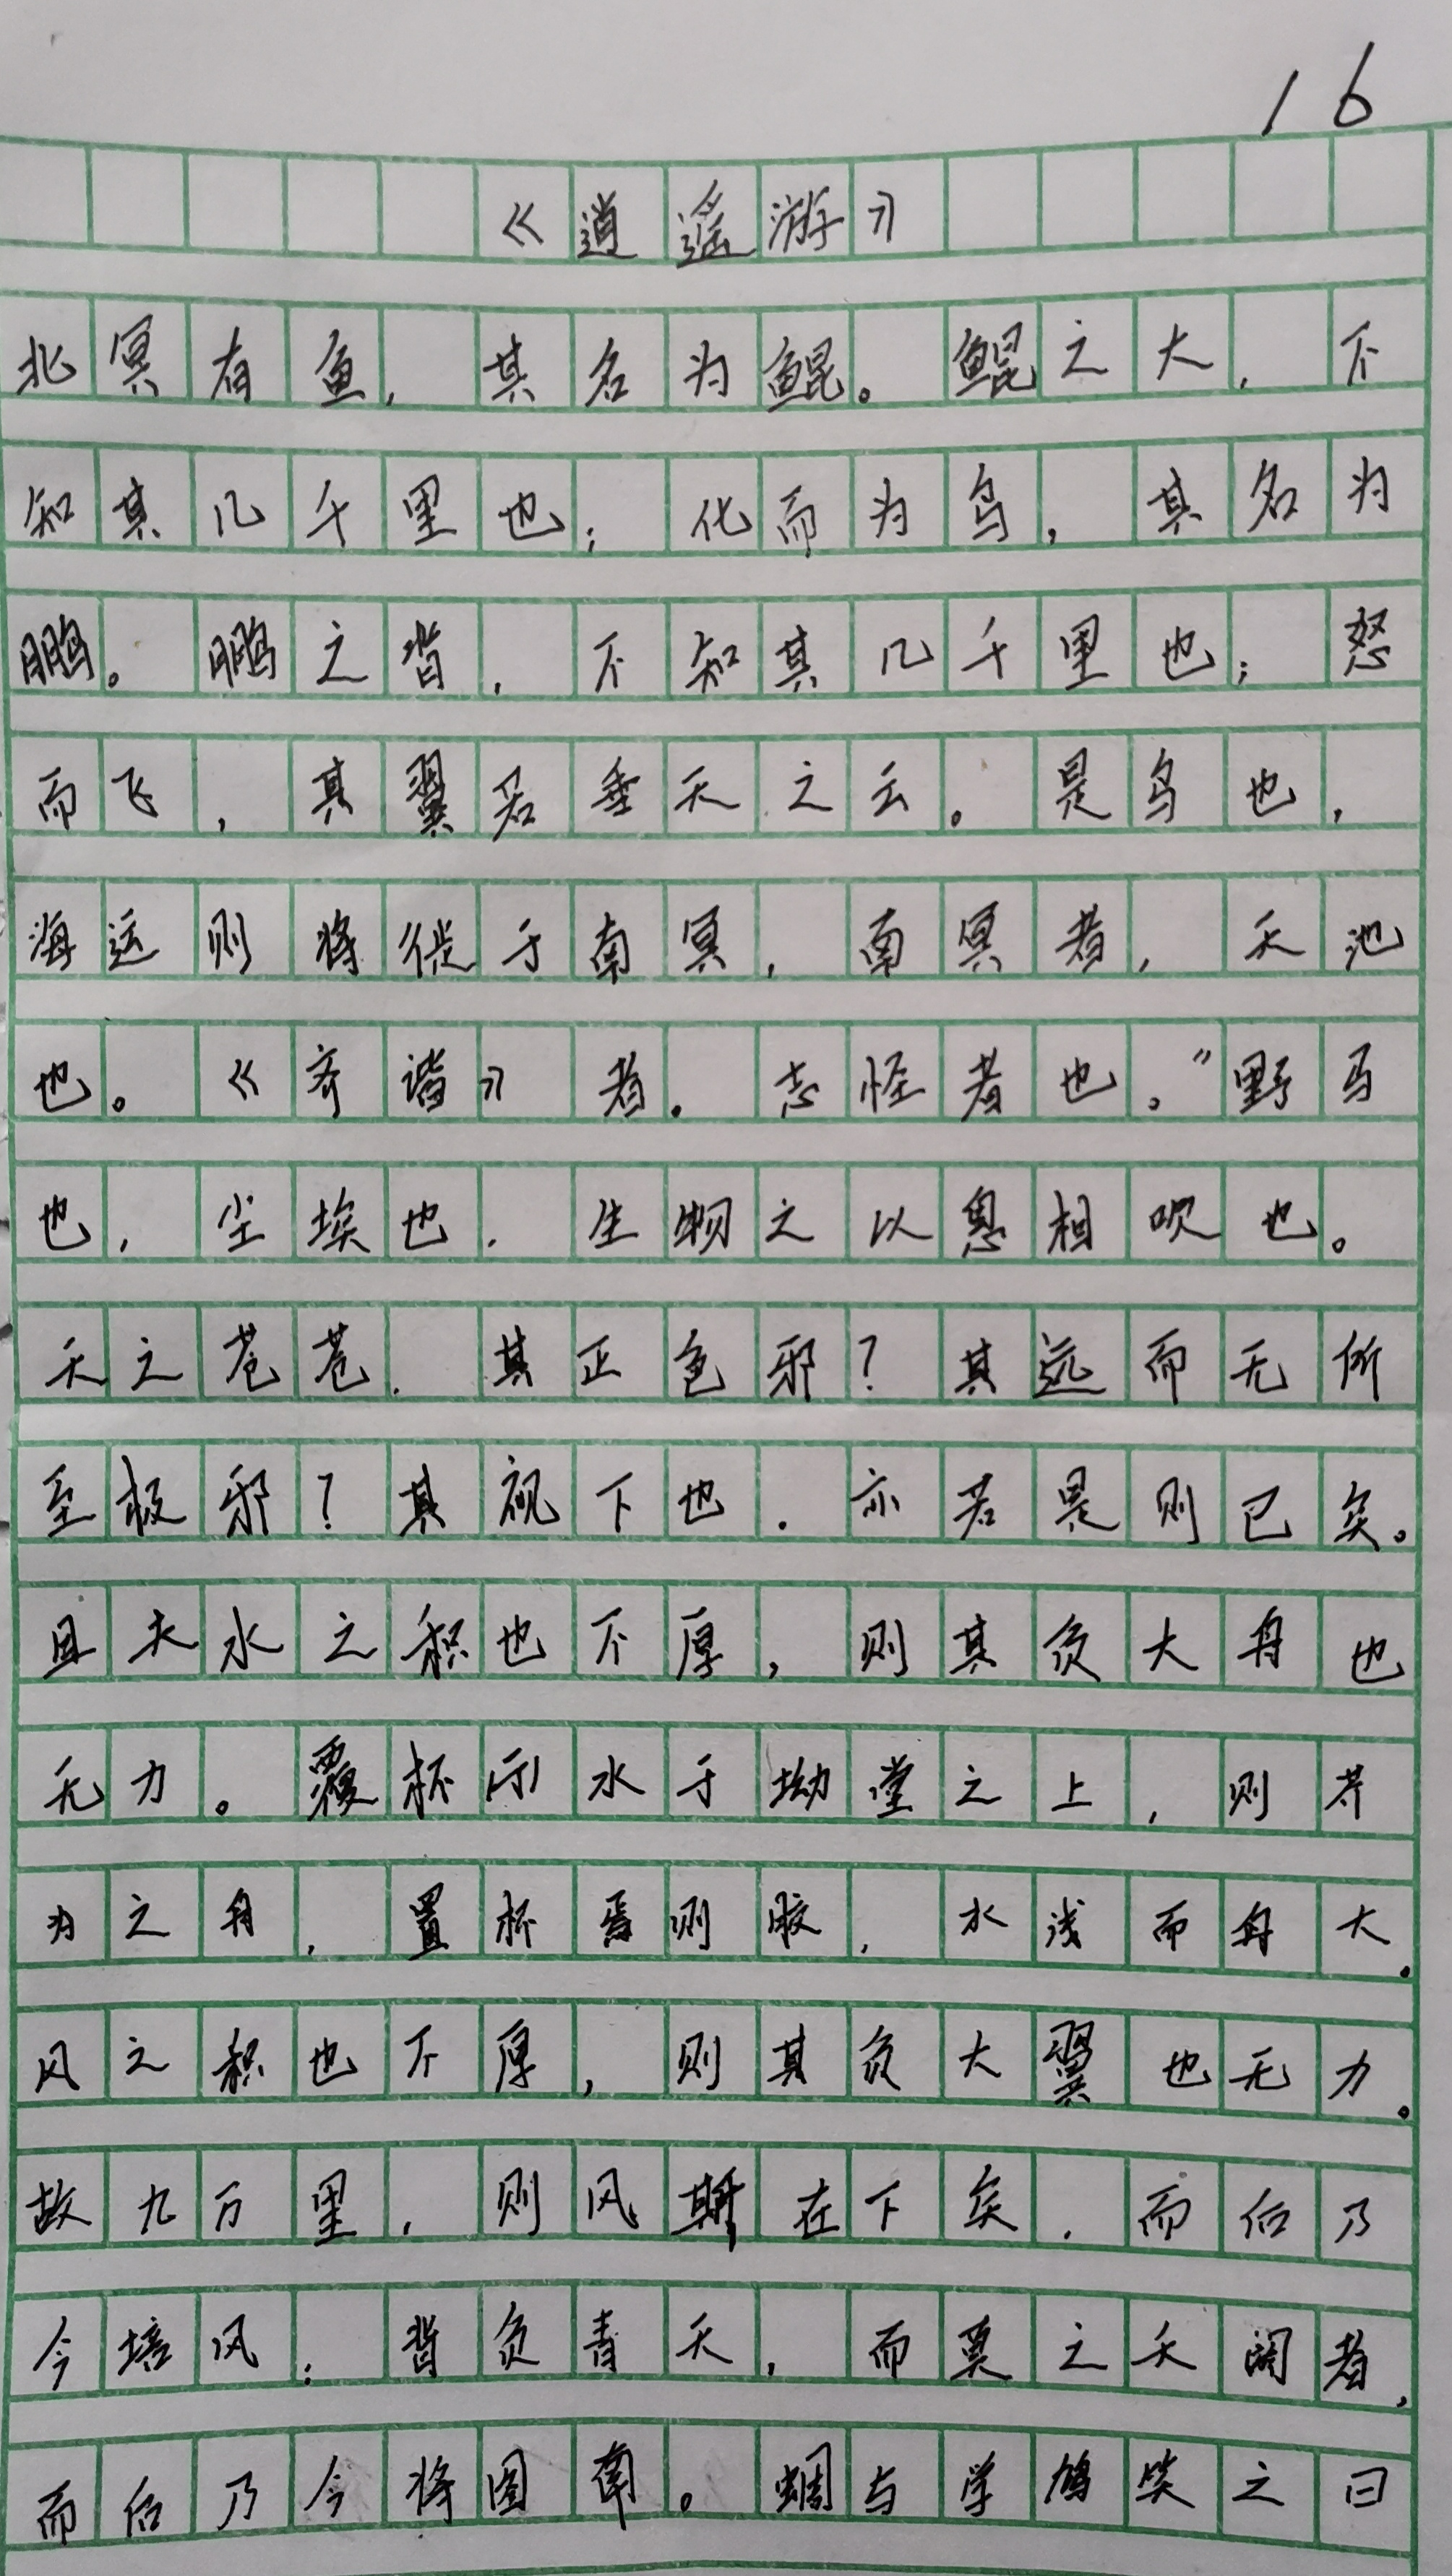 16
《逍遥游》
北冥有鱼，其名为鲲。鲲之大，不
知其几千里也；化而为鸟，其名为
鹏。鹏之背，不知其几千里也；怒
而飞，其翼若垂天之云。是鸟也，
海运则将徙于南冥，南冥者，天池
也。《齐谐》者．志怪者也。”野马
也，尘埃也．生物之以息相吹也。
天之苍苍．其正色邪？其远而无所
至极邪？其视下也．亦若是则已矣。
且夫水之积也不厚，则其负大舟也
无力。覆杯水于坳堂之上，则芥
为之舟，置杯焉则胶，水浅而舟大．
风之积也不厚，则其负大翼也无力。
故九万里，则风斯在下矣．而后乃
今培风；背负青天，而莫之夭阏者，
而后乃今将图南。蜩与学鸠笑之曰